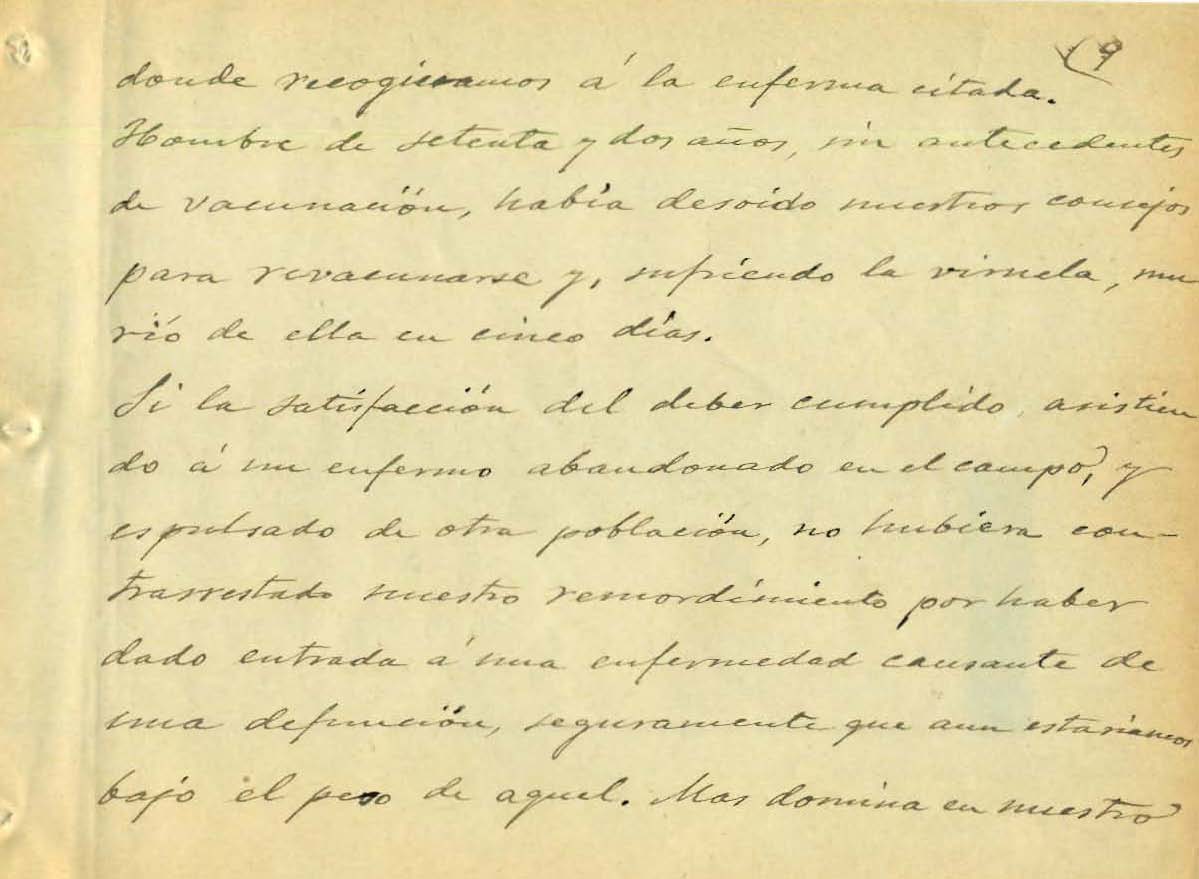 9
donde recogieramos á la enferma citada.
Hombre de setenta y dos años, sin antecedentes
de vacunación, había desoido nuestros consejos
para revacunarse y, sufriendo la viruela, mu
rió de ella en cinco días.
Si la satisfacción del deber cumplido, asistien
do á un enfermo abandonado en el campo, y
espulsado de otra población, no hubiera con-
trarrestado nuestro remordimiento por haber
dado entrada á una enfermedad causante de
una defunción, seguramente que aun estariamos
bajo el peso de aquel. Mas domina en nuestro